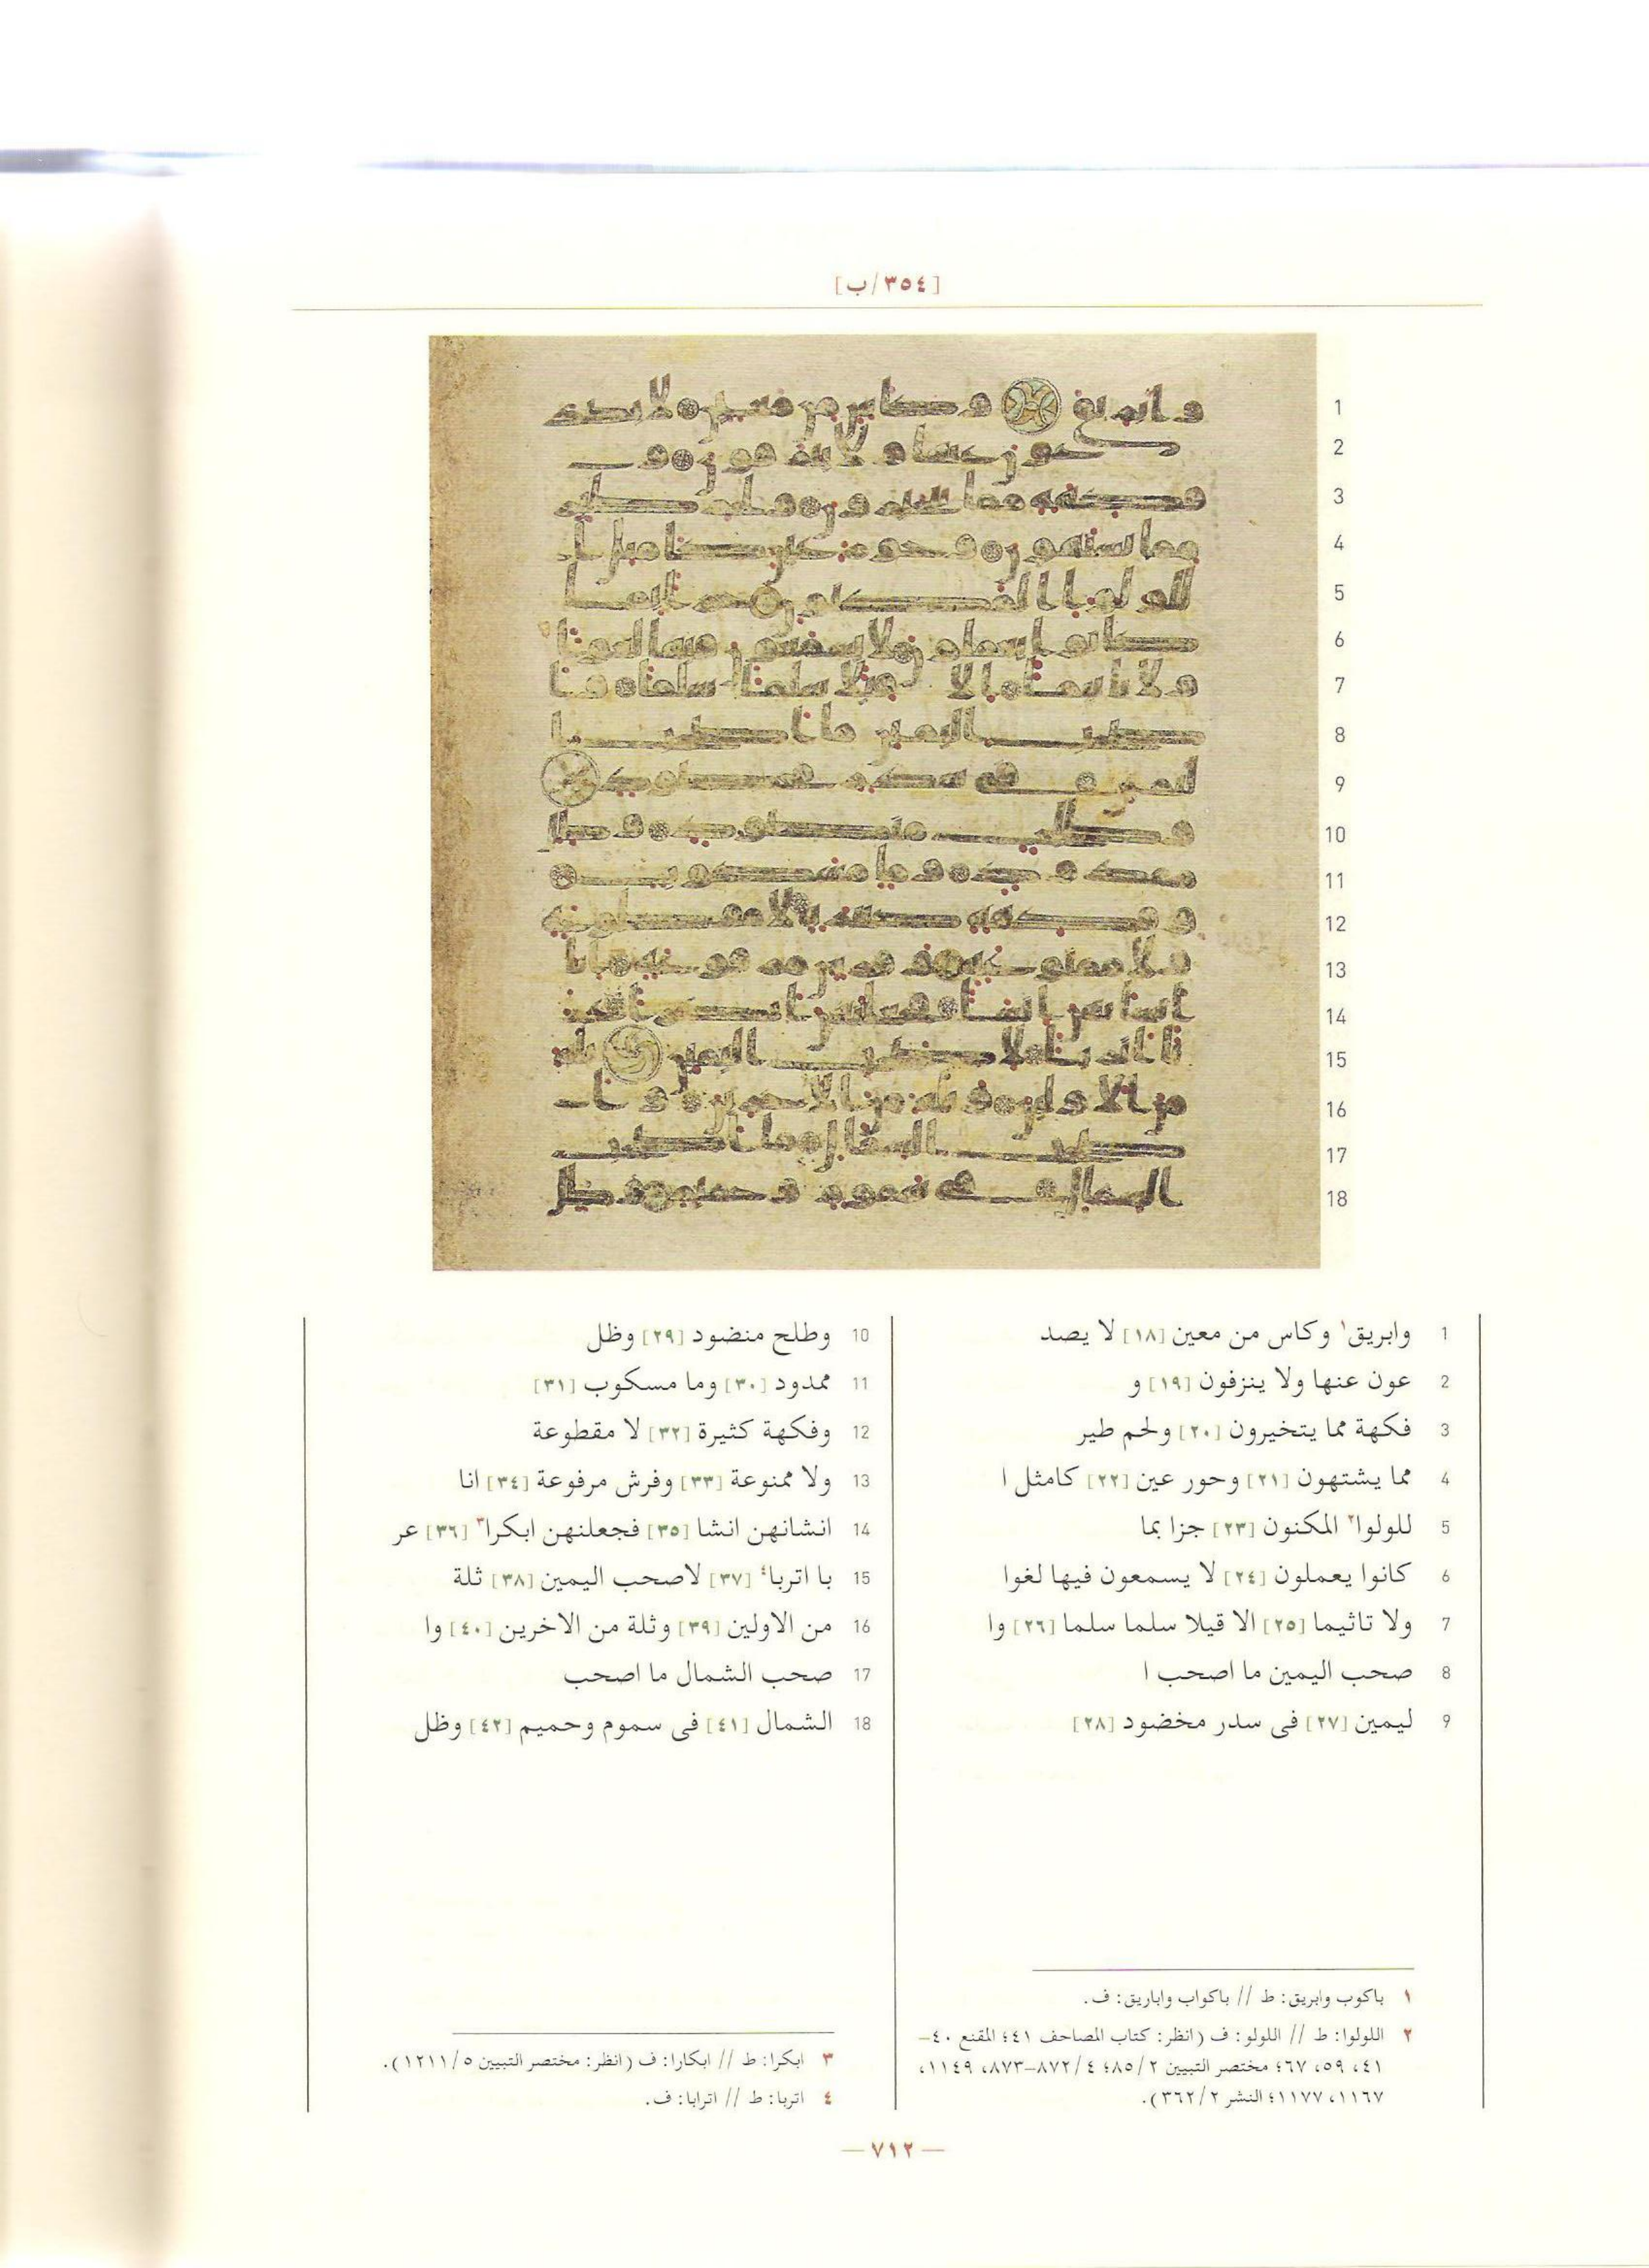 [٣٥٤/ب]
1 وابريق١ وكاس من معين [١٨] لا يصد
2 عون عنها ولا ينزفون [١٩] و
3 فكهة مما يتخيرون [٢٠] ولحم طير
4 مما يشتهون [٢١] وحور عين [٢٢] كامثل ا
5 للولوا٢ المكنون [٢٣] جزا بما
6 كانوا يعملون [٢٤] لا يسمعون فيها لغوا
7 ولا تاثيما [٢٥] الا قيلا سلما سلما [٢٦] وا
8 صحب اليمين ما اصحب ا
9 ليمين [٢٧] فى سدر مخضود [٢٨]
10 وطلح منضود [٢٩] وظل
11 ممدود [٣٠] وما مسكوب [٣١]
12 وفكهة كثيرة [٣٢] لا مقطوعة
13 ولا ممنوعة [٣٣] وفرش مرفوعة [٣٤] انا
14 انشانهن انشا [٣٥] فجعلنهن ابكرا٣ [٣٦] عر
15 با اتربا٤ [٣٧] لاصحب اليمين [٣٨] ثلة
16 من الاولين [٣٩] وثلة من الاخرين [٤٠] وا
17 صحب الشمال ما اصحب
18 الشمال [٤١] فى سموم وحميم [٤٢] وظل
١ باكوب وابريق: ط // باكواب واباريق: ف.
٢ اللولوا: ط // اللولو: ف (انظر: كتاب المصاحف ٤١؛ المقنع ٤٠–
٤١، ٥٩، ٦٧؛ مختصر التبيين ٢/ ٨٥؛ ٤/ ٨٧٢–٨٧٣، ١١٤٩،
١١٦٧، ١١٧٧؛ النشر ٢/ ٣٦٢).
٣ ابكرا: ط // ابكارا: ف (انظر: مختصر التبيين ٥/ ١٢١١).
٤ اتربا: ط // اترابا: ف.
— ٧١٢ —